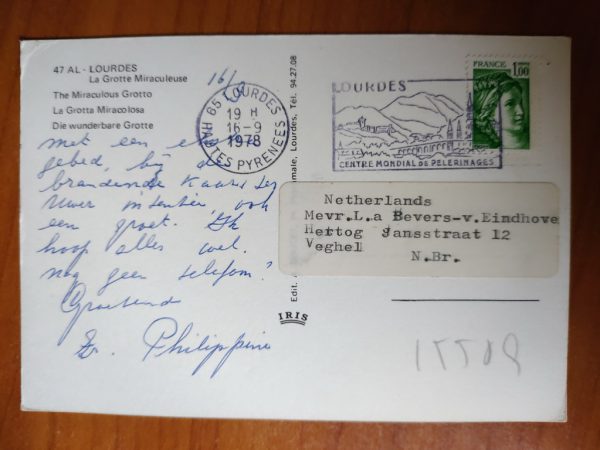 47 AL - LOURDES
La Grotte Miraculeuse
The Miraculous Grotto
La Grotta Miracolosa
Die wunderbare Grotte
16/9
65 LOURDES
19 H
16-9
1978
HAUTES PYRENEES
LOURDES
CENTRE MONDIAL DE PELERINAGES
FRANCE
1,00
met een
gebed, bij de
brandende kaars ter
Uwer intentie, ook
een groet. Ik
hoop alles wel.
nog geen telefoon?
Groetend
Zr. Philippine
Edit.
Lourdes, Tél. 94.27.08
IRIS
Netherlands
Mevr.L.a Bevers-v.Eindhove
Hertog Jansstraat 12
Veghel
N.Br.
15509